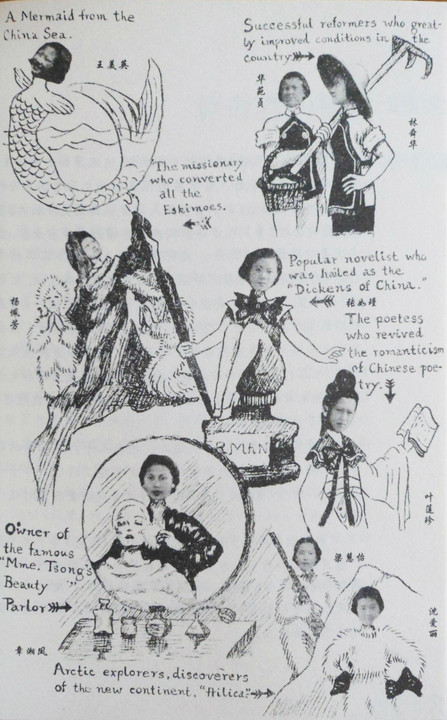 A Mermaid from the
China Sea.
王美英
Successful reformers who great-
ly improved conditions in the
country
华菀贞
林舜华
The missionary
who converted
all the
Eskimoes.
杨佩芳
Popular novelist who
was hailed as the
"Dickens of China."
The poetess
who revived
the romanticism
of Chinese poe-
try.
叶莲珍
RMAN
Owner of
the famous
"Mme. Tsong's
Beauty
Parlor
章湘凤
梁慧怡
沈爱丽
Arctic explorers, discoverers
of the new continent,